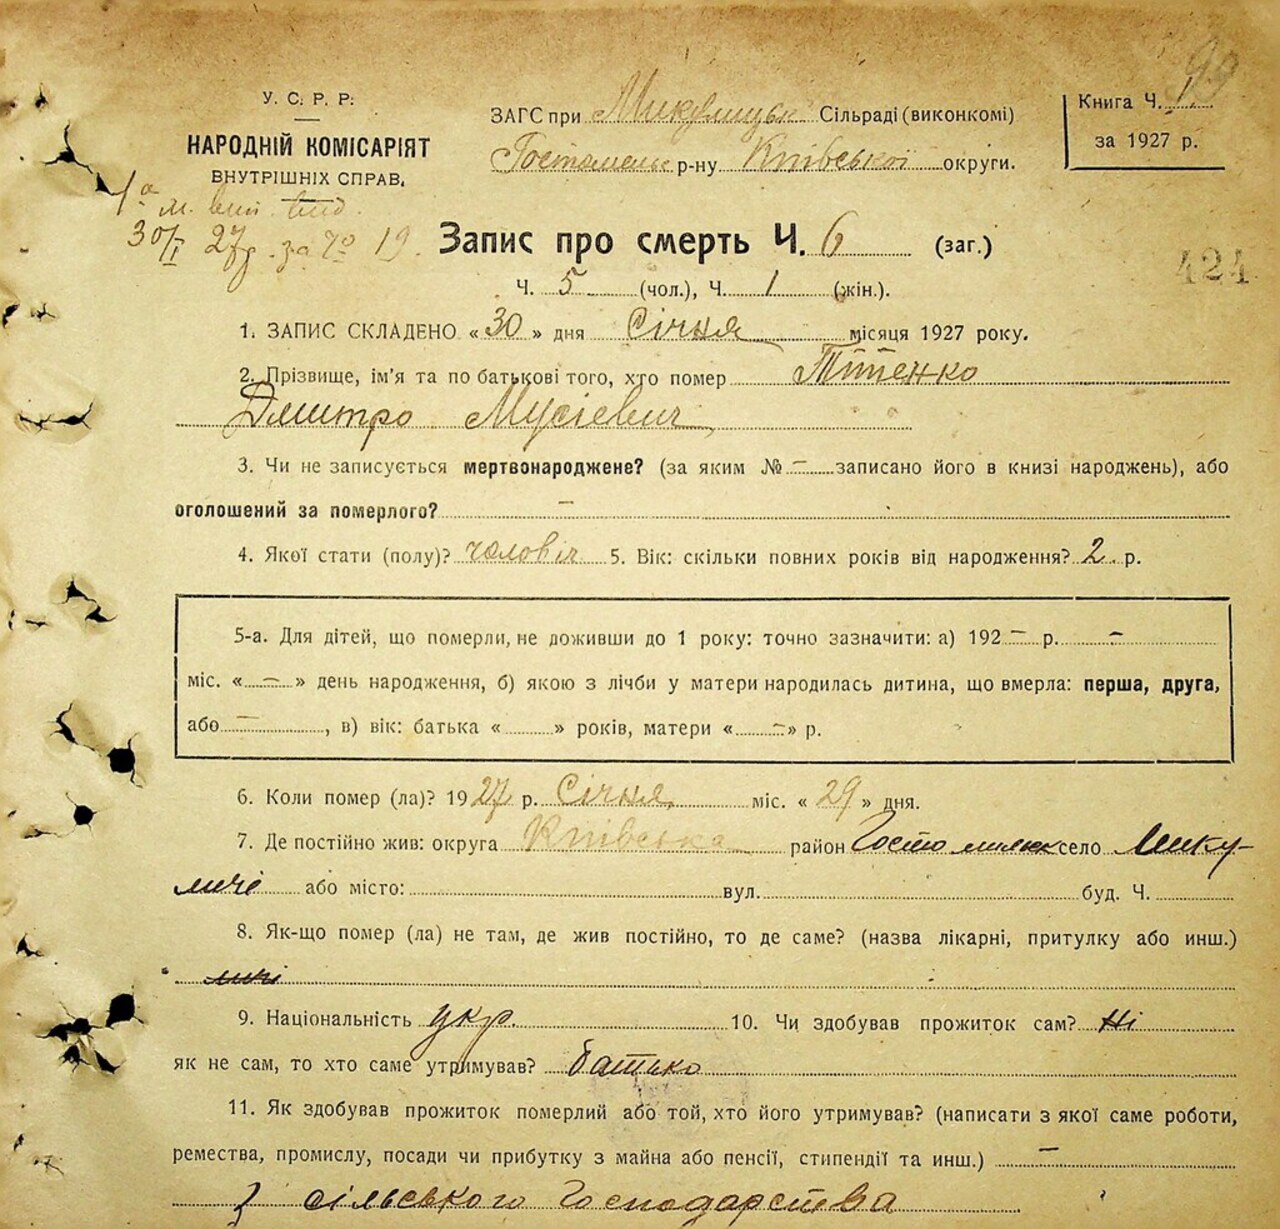 99
У. С. Р. Р.
НАРОДНІЙ КОМІСАРІЯТ
ВНУТРІШНІХ СПРАВ.
ЗАГС при Микулицьк Сільраді (виконкомі)
Гостомельс р-ну Київської округи.
Книга Ч. 1
за 1927 р.
30/I 27р. за № 19.
Запис про смерть Ч. 6 (заг.)
424
Ч. 5 (чол.), Ч. 1 (жін.).
1. ЗАПИС СКЛАДЕНО «30» дня Січня місяця 1927 року.
2. Прізвище, ім'я та по батькові того, хто помер Тітенко
Дмитро Мусієвич
3. Чи не записується мертвонароджене? (за яким № – записано його в книзі народжень), або
оголошений за померлого? –
4. Якої стати (полу)? чоловіч 5. Вік: скільки повних років від народження? 2 р.
5-а. Для дітей, що померли, не доживши до 1 року: точно зазначити: а) 192 – р. –
міс. « – » день народження, б) якою з лічби у матери народилась дитина, що вмерла: перша, друга,
або –, в) вік: батька « » років, матери « – » р.
6. Коли помер (ла)? 1927 р. Січня міс. « 29 » дня.
7. Де постійно жив: округа Київська район Гостомильк село Мику-
личі або місто: вул. буд. Ч.
8. Як-що помер (ла) не там, де жив постійно, то де саме? (назва лікарні, притулку або инш.)
9. Національність укр. 10. Чи здобував прожиток сам? Ні
як не сам, то хто саме утримував? батько
11. Як здобував прожиток померлий або той, хто його утримував? (написати з якої саме роботи,
ремества, промислу, посади чи прибутку з майна або пенсії, стипендії та инш.) –
з сільського Господарства